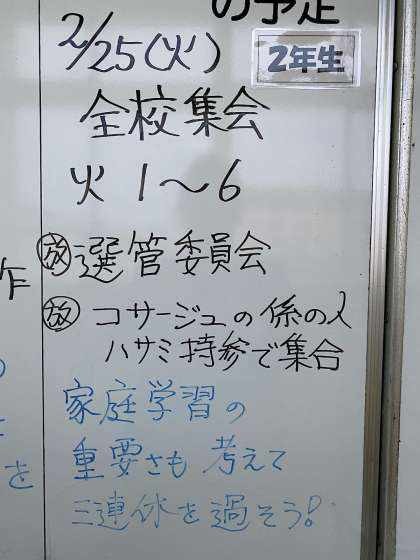 の予定
2/25(火)
2年生
全校集会
火 1〜6
放 選管委員会
放 コサージュの係の人
ハサミ持参で集合
家庭学習の
重要さも考えて
三連休を過そう!
作
を